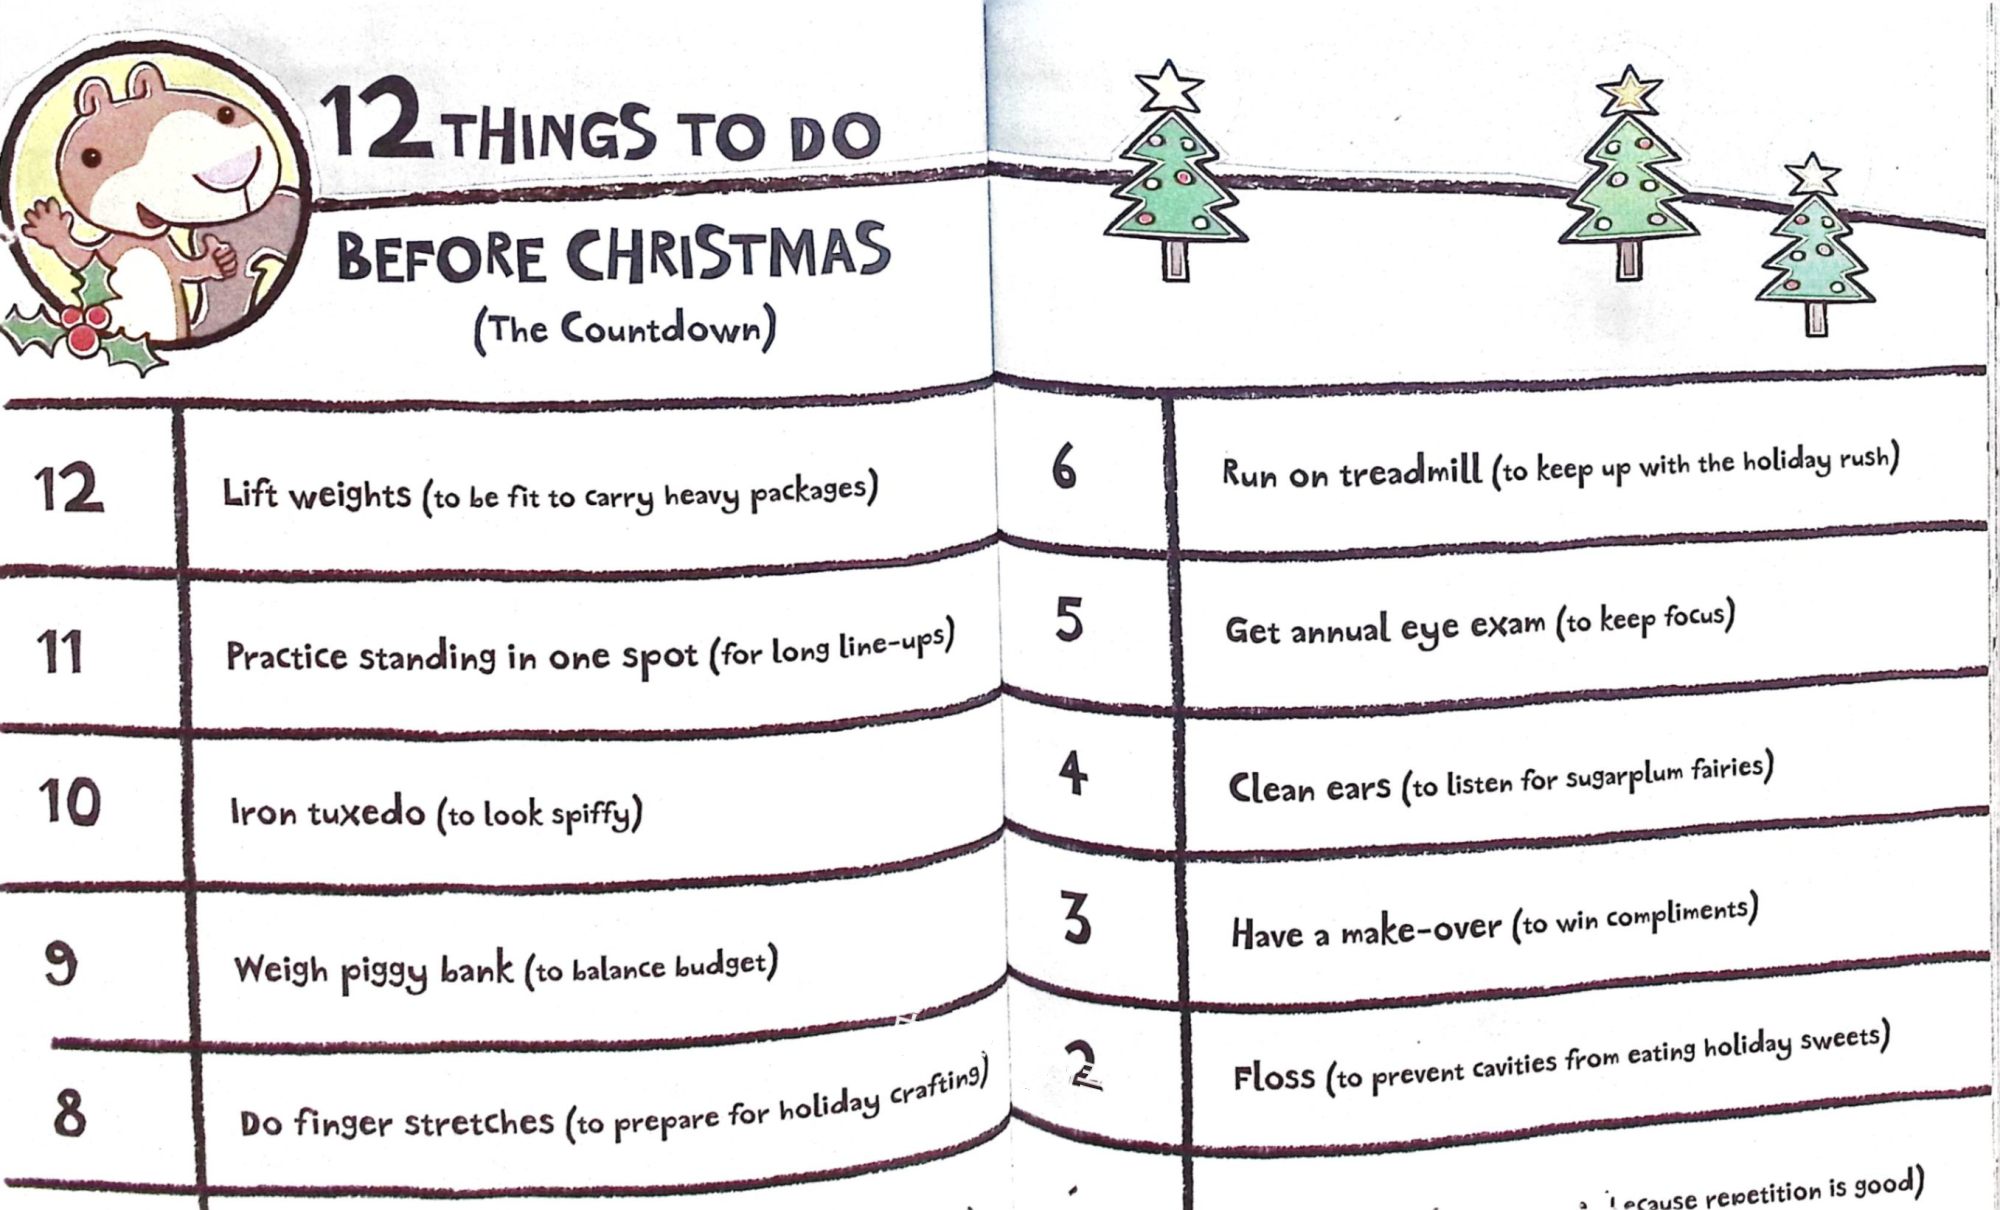 12 THINGS TO DO
BEFORE CHRISTMAS
(The Countdown)
12 Lift weights (to be fit to carry heavy packages)
11 Practice standing in one spot (for long line-ups)
10 Iron tuxedo (to look spiffy)
9 Weigh piggy bank (to balance budget)
8 Do finger stretches (to prepare for holiday crafting)
6 Run on treadmill (to keep up with the holiday rush)
5 Get annual eye exam (to keep focus)
4 Clean ears (to listen for sugarplum fairies)
3 Have a make-over (to win compliments)
2 Floss (to prevent cavities from eating holiday sweets)
because repetition is good)